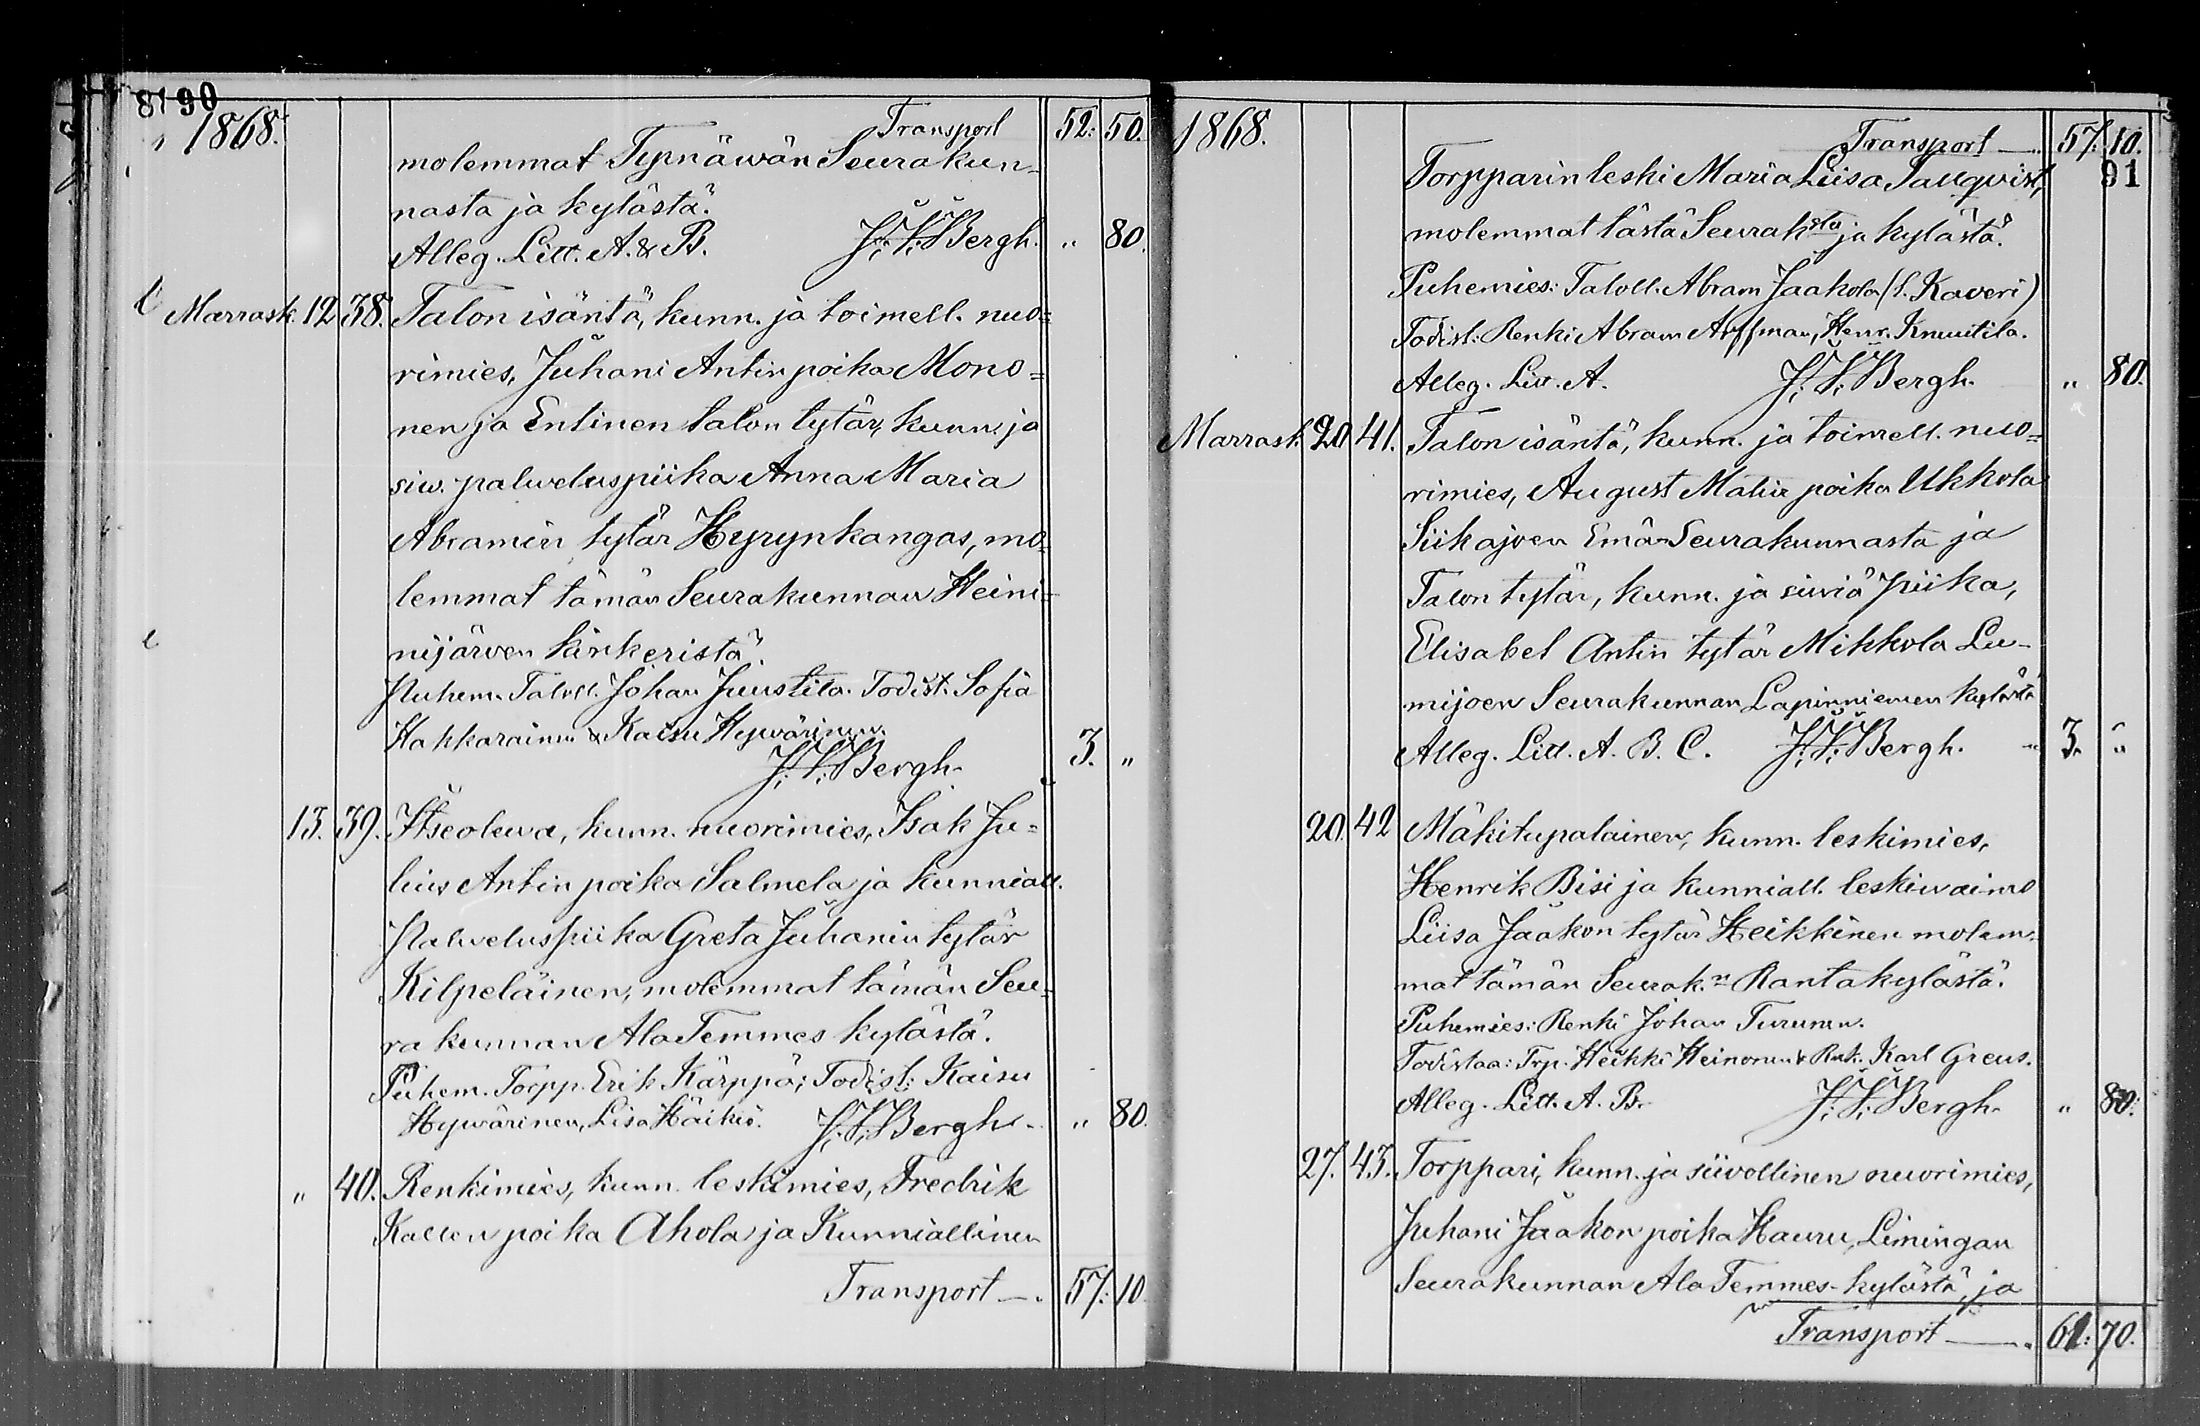 8190
1868.
Transport 52: 50.
molemmat Typnäwän Seurakun-
nasta ja kylästä.
Alleg. Litt. A. & B. J. V. Bergh. " 80.
Marrask. 12 38. Talon isäntä, kunn. ja toimell. nuo=
rimies, Juhani Antin poika Mono=
nen ja Entinen talon tytär, kunn. ja
siw. palveluspiika Anna Maria
Abramin tytär Hyrynkangas, mo-
lemmat tämän Seurakunnan Heini-
nijärven kinkeristä.
Puhem. Taloll. Johan Juustila. Todist. Sofia
Hakkarainen & Kaisu Hywärinen.
J. V. Bergh. 3. "
13. 39. Itseolewa, kunn. nuorimies, Isak Ju=
lius Antin poika Salmela ja kunniall.
Palweluspiika Greta Juhanin tytär
Kilpeläinen, molemmat tämän Seu-
rakunnan Ala Temmes kylästä.
Puhem. Torpp. Erik Kärppä; Todist: Kaisu
Hywärinen, Lisa Häikiö. J. V. Bergh. " 80.
" 40. Renkimies, kunn. leskimies, Fredrik
Kallen poika Ahola ja Kunniallinen
Transport 57: 10
1868.
Transport 57: 10.
91
Torpparin leski Maria Liisa Tallqvist,
molemmat tästä Seurak:sta ja kylästä.
Puhemies: Taloll. Abram Jaakola (l. Kaveri)
Todist: Renki Abram Arffman, Henr. Knuutila.
Alleg. Litt. A. J. V. Bergh. " 80.
Marrask. 20 41. Talon isäntä, kunn. ja toimell. nuo=
rimies, August Matin poika Ukkola
Siikajoen Emä Seurakunnasta ja
Talon tytär, kunn. ja siviä piika,
Elisabet Antin tytär Mikkola Lu-
mijoen Seurakunnan Lapinniemen kylästä
Alleg. Litt. A. B. C. J. V. Bergh. 3. "
20. 42 Mäkitupalainen, kunn. leskimies,
Henrik Bisi ja kunniall. leskiwaimo
Liisa Jaakon tytär Heikkinen molem-
mat tämän Seurak.n Rantakylästä.
Puhemies: Renki Johan Turunen.
Todistaa: Trp. Heikki Heinonen & Renk. Karl Greus.
Alleg. Litt. A. B. J. V. Bergh. " 80.
27. 43. Torppari, kunn. ja siivollinen nuorimies,
Juhani Jaakon poika Hauru, Limingan
Seurakunnan Ala Temmes-kylästä, ja
Transport 61: 70.